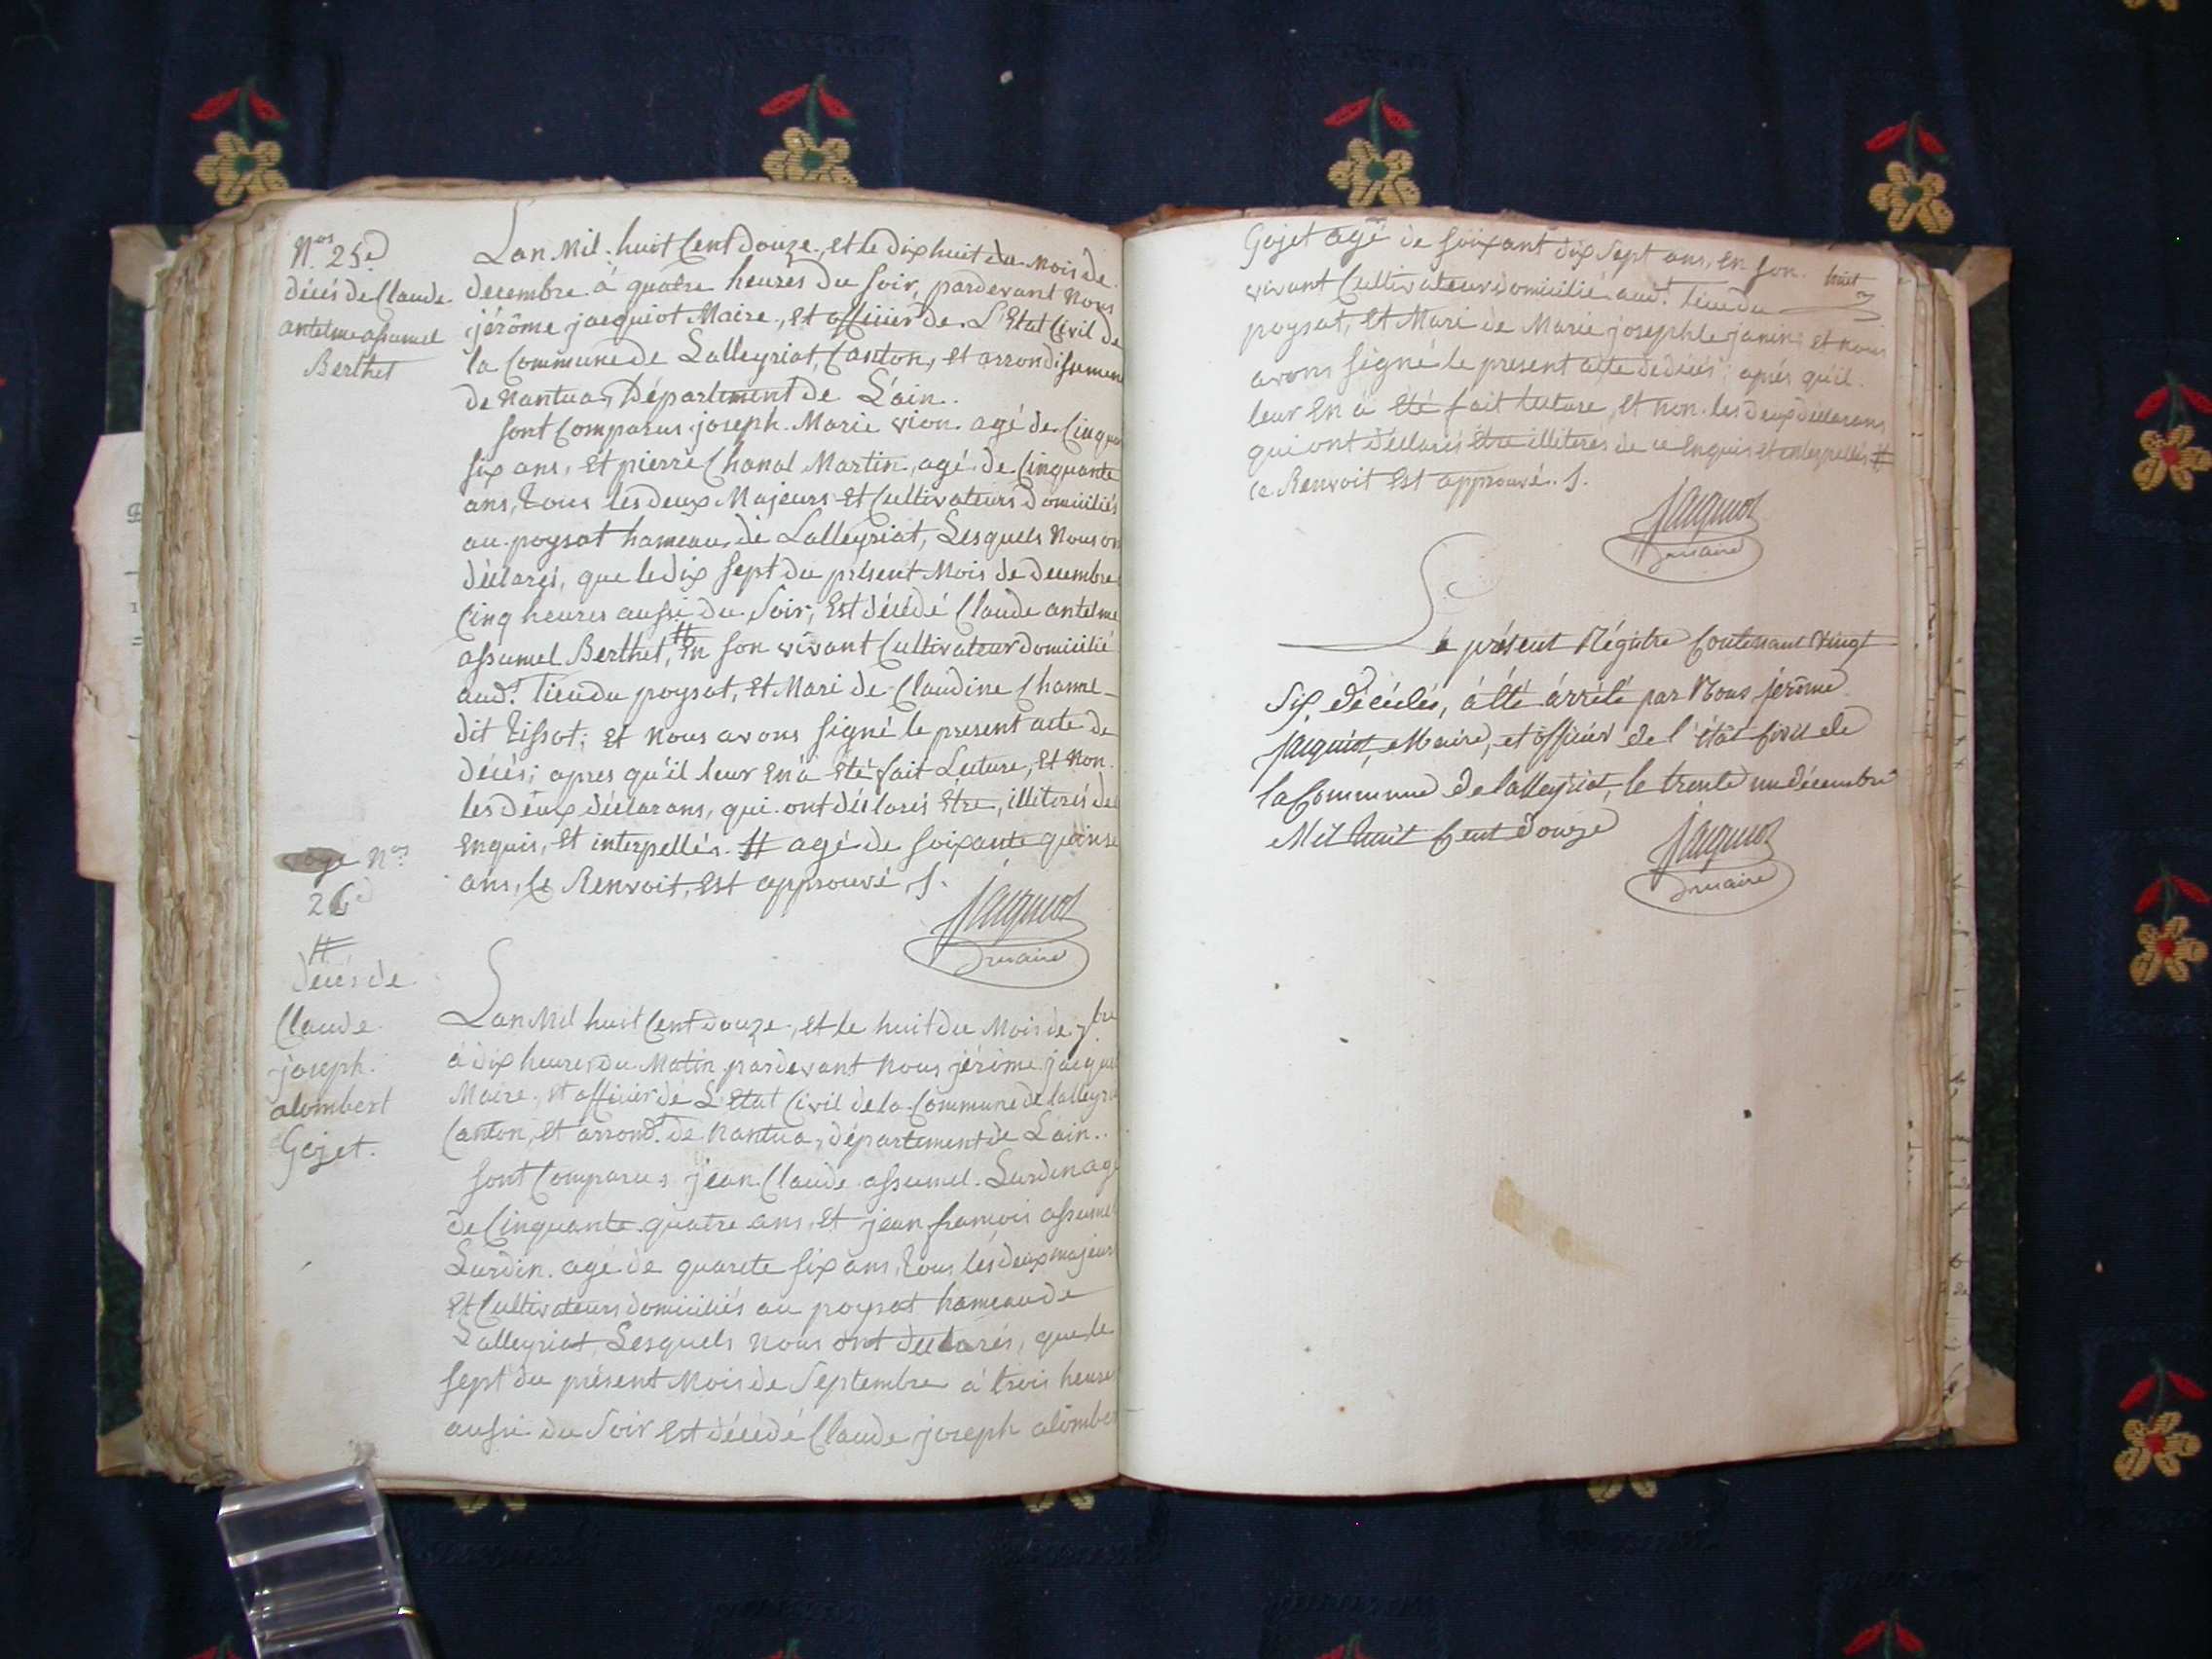 Nos 25e
décés de Claude
antelme assumel
Berthet
Lan Mil huit Cent douze, et le dix huit du Mois de
decembre à quatre heures du soir, pardevant Nous
jérôme jacquiot Maire, et officier de L'Etat Civil de
la Commune de Lalleyriat, Canton, et arrondissemen
de Nantua, Département de L'ain.
sont Comparus joseph Marie vion agé de Cinquan
six ans, et pierre Chanal Martin, agé de Cinquante
ans, tous les deux Majeurs et Cultivateurs domiciliés
au poysat hameau de Lalleyriat, Lesquels Nous on
déclarés, que le dix sept du présent Mois de decembre
Cinq heures aussi du Soir, Est décédé Claude antelme
assumel Berthet, # En son vivant Cultivateur domicilié
aud.t lieu du poysat, et Mari de Claudine Chanel
dit tissot; et Nous avons signé le present acte de
décés; apres qu'il leur en à été fait Lecture, et Non
les deux déclarans, qui ont déclarés être, illiterés de
Enquis, et interpellés. # agé de soixante quinse
ans, Ce Renvoit, est approuvé, S.
Jacquiot
maire
Nos
26e
#
décés de
Claude
joseph
alombert
Gojet.
Lan Mil huit Cent douze, et le huit du Mois de 7bre
à dix heures du Matin pardevant Nous jérôme jacqui
Maire, et officier de L'Etat Civil de la Commune de lalleyria
Canton, et arrond.t de Nantua, département de Lain.
sont Comparus jean Claude assumel Lurdin agé
de Cinquante quatre ans, et jean francois assumel
Lurdin agé de quarete six ans, tous les deux majeurs
Et Cultivateurs domiciliés au poysat hameau de
Lalleyriat, Lesquels Nous ont declarés, que le
sept du présent Mois de Septembre à trois heures
aussi du Soir est décédé Claude joseph alombe
Gojet agé de soixant dix sept ans, en son
huit
vivant Cultivateur domicilié aud.t lieu du
poysat, et Mari de Marie josephle janin; et nous
avons signé le present acte de décés; aprés qu'il
leur en à été fait lecture, et non les deux déclarans
qui ont déclarés être illiterés de ce enquis et interpellés #
ce Renvoit est approuvé. S.
Jacquiot
maire
Le présent Régistre Contenant Vingt
Six décédés, à été àrrêté par Nous jérôme
jacquiot, Maire, et officier de l'état Civil de
la Commune de lalleyriat, le trente un décembre
Mil huit Cent douze
Jacquiot
maire